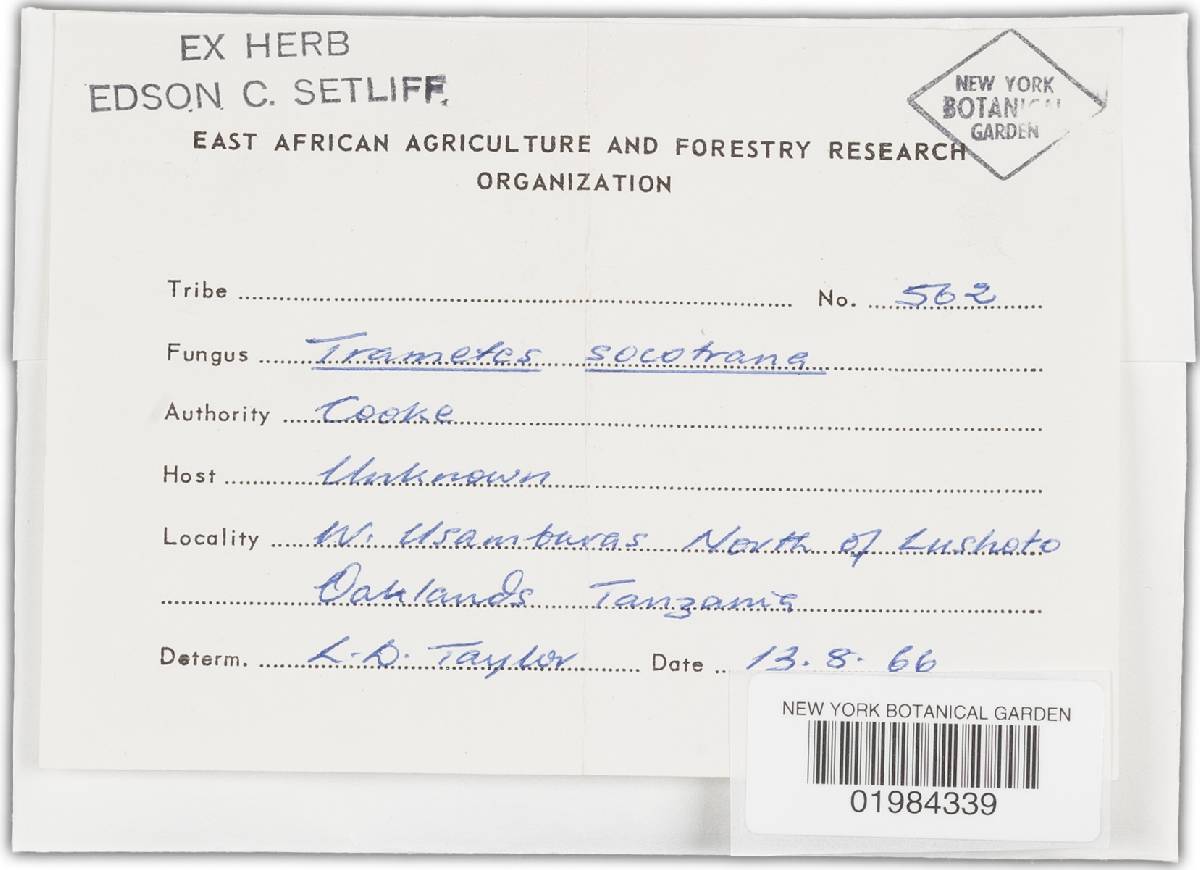 EX HERB
EDSON C. SETLIFF
NEW YORK
BOTANICAL
GARDEN
EAST AFRICAN AGRICULTURE AND FORESTRY RESEARCH
ORGANIZATION
Tribe
No. 562
Fungus Trametes socotrana
Authority Cooke
Host Unknown
Locality W. Usambaras North of Lushoto
Oaklands Tanzania
Determ. L.D. Taylor Date 13.8.66
NEW YORK BOTANICAL GARDEN
01984339